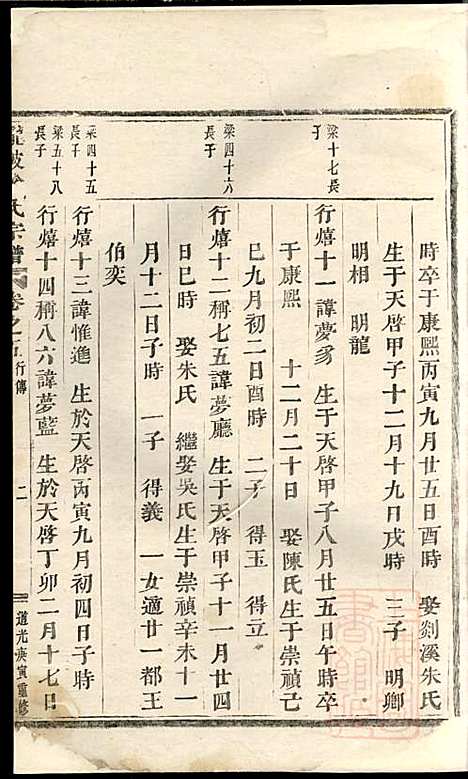 時卒于康熙丙寅九月廿五日酉時　娶剡溪朱氏
生于天啓甲子十二月十九日戌時　三子　明卿
明相　明龍
梁十七長子
行熺十一諱夢　生于天啓甲子八月廿五日午時卒
于康熙　十二月二十日　娶陳氏生于崇禎己
巳九月初二日酉時　二子　得玉　得立
梁四十六長子
行熺十二稱七五諱夢廳　生于天啓甲子十一月廿四
日巳時　娶朱氏　繼娶吳氏生于崇禎辛未十一
月十二日子時　一子　得義　一女適廿一都王
伯奕
梁四十五長子
行熺十三諱惟進　生於天啓丙寅九月初四日子時
梁五十八長子
行熺十四稱八六諱夢藍　生於天啓丁卯二月十七日
氏宗譜　卷之　行傳　二　道光庚寅重修